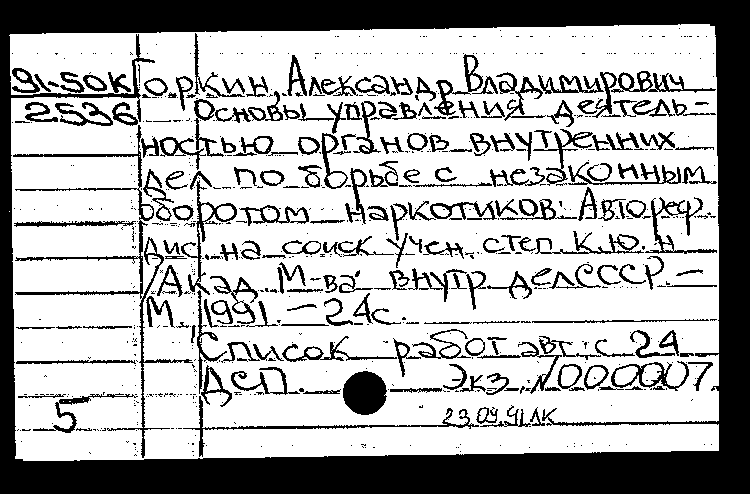 91-50К Горкин, Александр Владимирович
2536 Основы управления деятель-
ностью органов внутренних
дел по борьбе с незаконным
оборотом наркотиков: Автореф.
дис. на соиск. учен. степ. к.ю.н
/Акад. М-ва внутр. дел СССР. –
М., 1991. – 24с.
Список работ авт.: с 24
ДСП. Экз. №000007.
5
23.09.91 ЛК